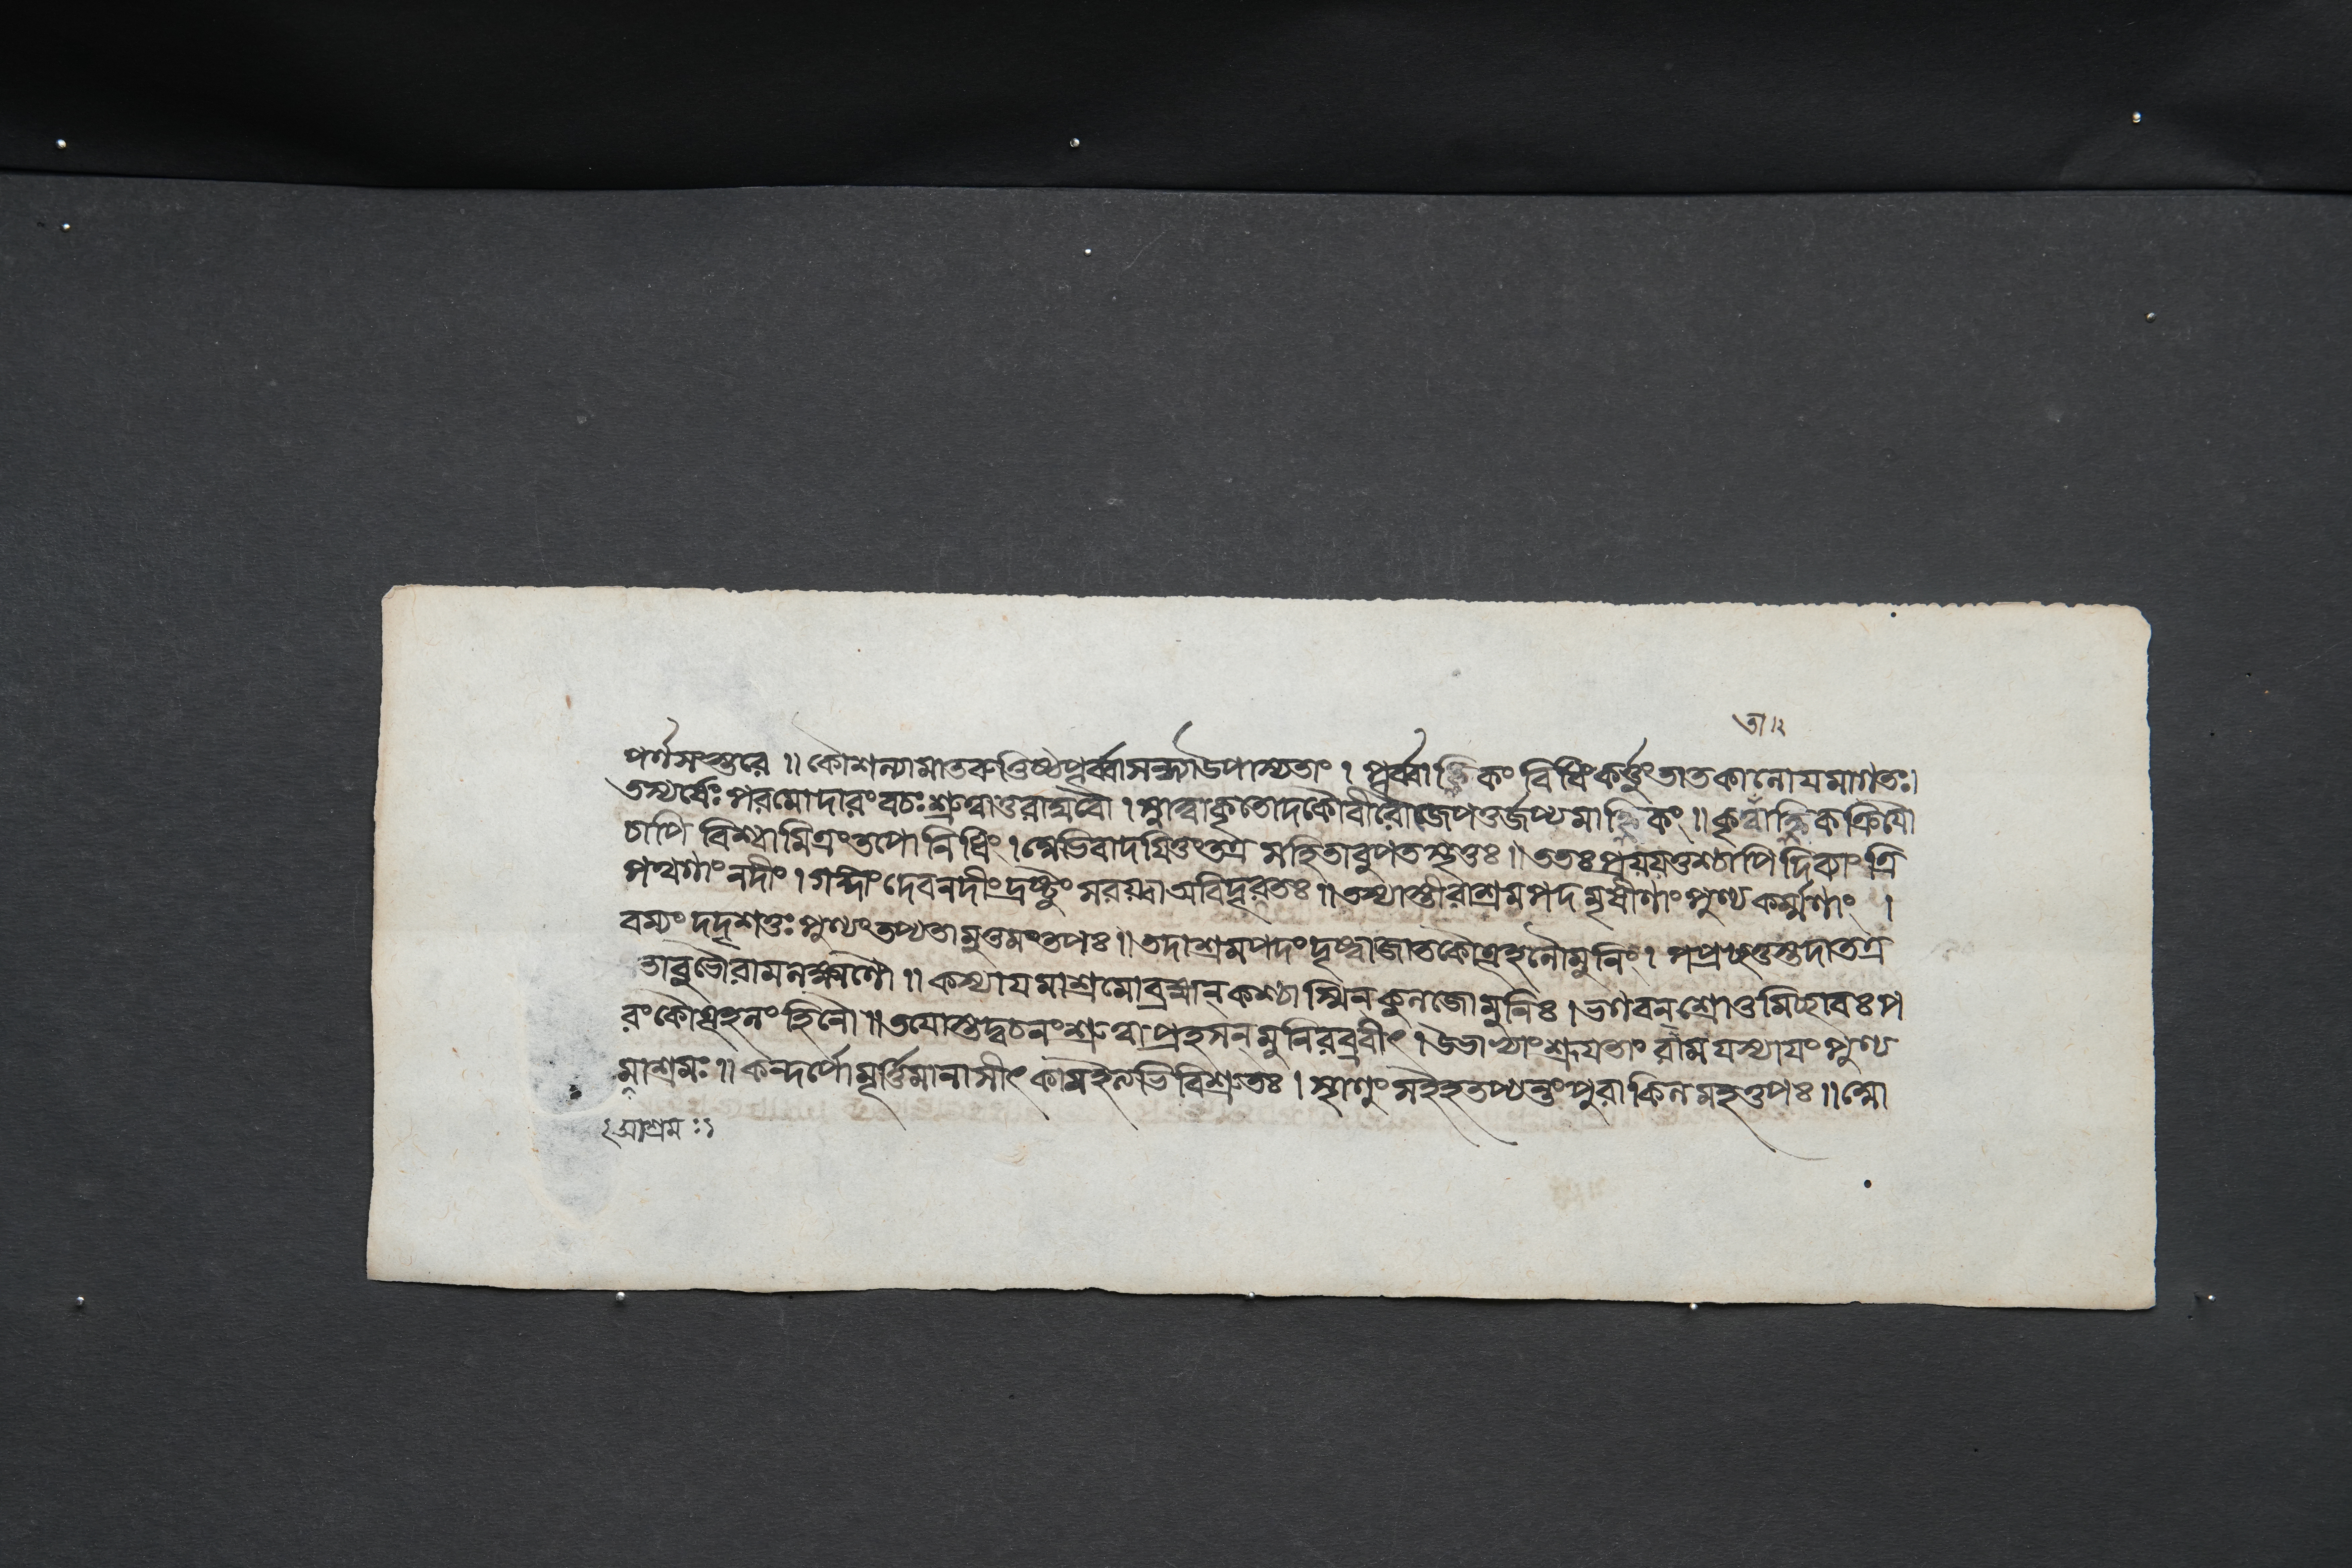 তা।২
পর্ণসংস্তরে ॥ কৌশল্যামাতরুত্তিষ্ঠপূর্ব্বাসন্ধ্যাউপাস্যতাং । পূর্ব্বাহ্নিকং বিধিং কর্ত্তুংতাতকালোযমাগতঃ।
তস্যর্ষেঃ পরমোদারংবচঃশ্রুত্বাতুরাঘবৌ । স্নাত্বাকৃতোদকৌবীরৌজেপতুর্জপ্যমাহ্নিকং ॥ কৃত্বাহ্নিকক্রিযৌ
চাপি বিশ্বামিত্রংতপোনিধিং । ভিবাদযিতুংতত্র সহিতাবুপতস্থতুঃ ॥ ততঃপ্রযযতুশ্চাপি দিব্যাং ত্রি
পথগাং নদীং । গঙ্গাং দেবনদীং দ্রষ্টুং সরয্বা অবিদূরতঃ ॥ তস্যাস্তীরাশ্রমপদমৃষীণাং পুণ্যকর্ম্মণাং ।
রম্যং দদৃশতুঃ পুণ্যংতপ্যতামুত্তমংতপঃ ॥ তদাশ্রমপদংদৃষ্ট্বাজাতকৌতূহলৌমুনিং । পপ্রচ্ছতুস্তদাতত্র
তাবুভৌরামলক্ষ্মণৌ ॥ কস্যাযমাশ্রমোব্রহ্মন্ কশ্চাস্মিন্ কুলজোমুনিঃ । ভগবন্ শ্রোতুমিচ্ছাবঃ প
রংকৌতূহলং হিনৌ ॥ তযোস্তদ্বচনংশ্রুত্বা প্রহসন্ মুনিরব্রবীৎ । উভাভ্যাং শ্রূযতাং রাম যস্যাযং পুণ্য
মাশ্রমঃ ॥ কন্দর্পো মূর্ত্তিমানাসীৎ কামইত্যভিবিশ্রুতঃ । স্থাণুং সইহতপ্যন্তংপুরাকিলমহত্তপঃ ॥
আশ্রমঃ